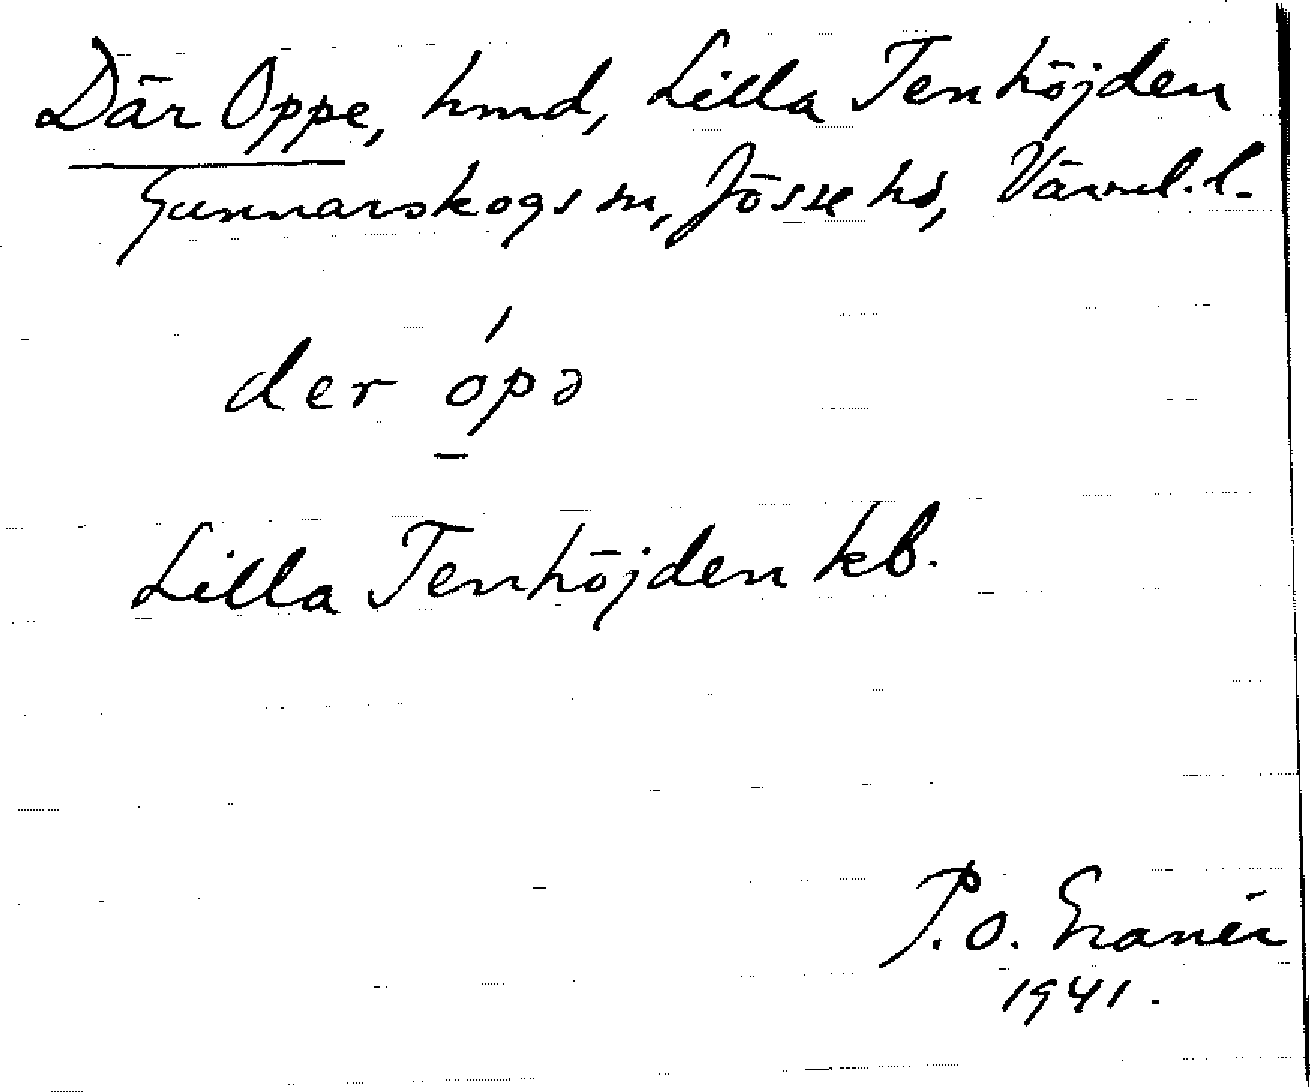 Där Oppe, hmd, Lilla Tenhöjden
Gunnarskogs sn, Jösse hd, Värml. l.
der ópə
Lilla Tenhöjden kb.
P. O. Granér
1941.